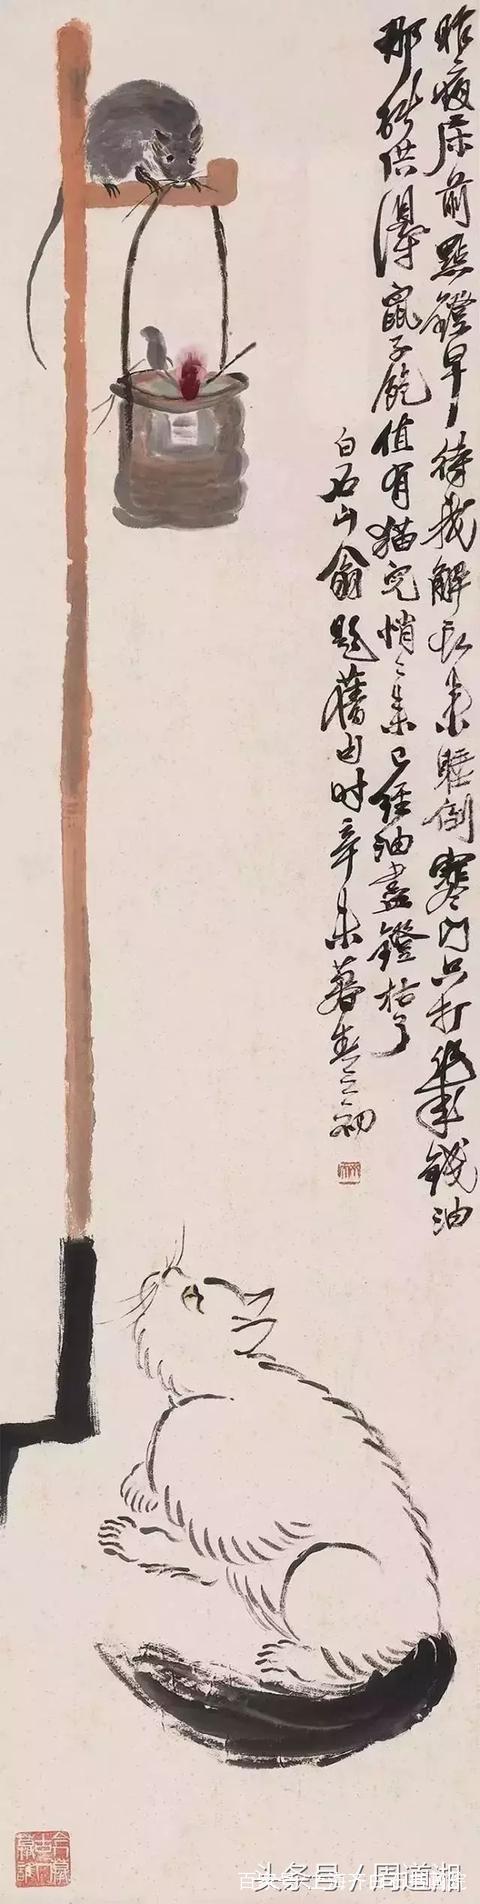 昨夜床前點鐙早待我解衣來睡倒寒門只打錢油
那能供得鼠子飽值有猫兒悄〻來已經油盡鐙枯了
白石山翁題舊句時辛未暮春之初
头条号 / 周道湘